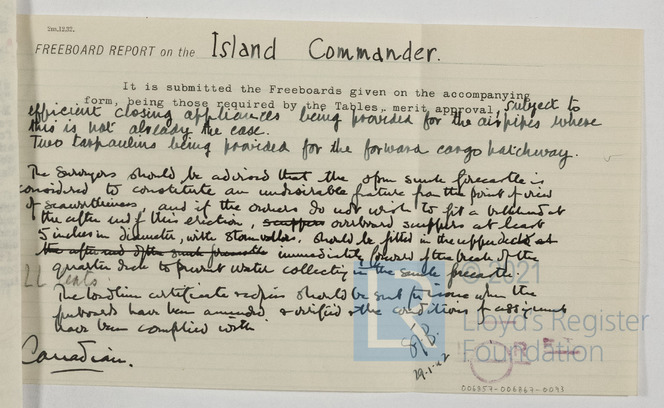 2m.12.37.
FREEBOARD REPORT on the Island Commander.
It is submitted the Freeboards given on the accompanying
form, being those required by the Tables, merit approval, subject to
efficient closing appliances being provided for the airpipes where
this is not already the case.
Two tarpaulins being provided for the forward cargo hatchway.
The Surveyors should be advised that the open sunk forecastle is
considered to constitute an undesirable feature from the point of view
of seaworthiness, and if the owners do not wish to fit a bulkhead at
the after end of this erection, scuppers overboard scuppers at least
5 inches in diameter, with storm valves, should be fitted in the upper deck at
the after end of the sunk forecastle immediately forward of the break of the
quarter deck to prevent water collecting in the sunk forecastle.
LL
The loadline certificate should be sent for issue when the
freeboards have been amended & verified & the conditions of assignment
have been complied with
29.1.42
Canadian.
© 2021
Lloyd's Register
Foundation
006857-006867-0093